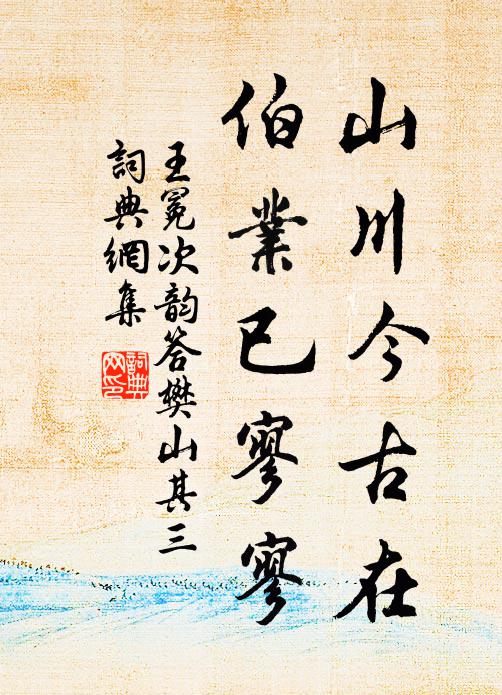 山川今古在
伯業已寥寥
王冕次韵答樊山其三
詞典網集
詞典網印